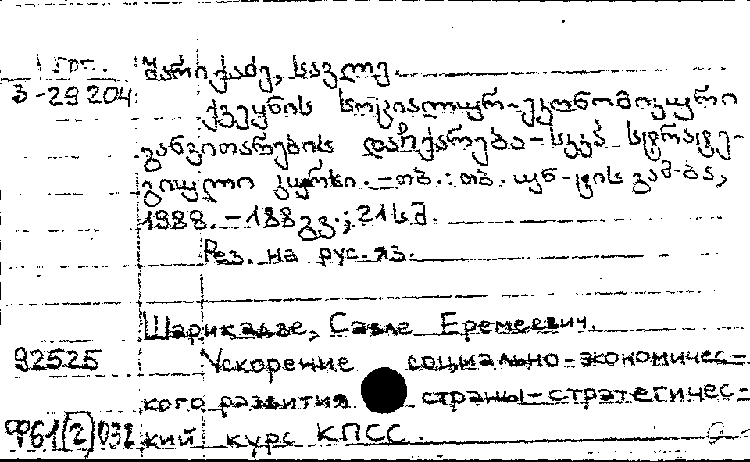 გრ. შარიქაძე, სავლე.
3-29204 ქვეყნის სოციალურ-ეკონომიკური
განვითარების დაჩქარება-სკკპ სტრატე-
გიული კურსი.-თბ.:თბ. უნ-ტის გამ-ბა,
1988.-188გვ.; 21სმ.
Рез. на рус.яз.
Шарикадзе, Савле Еремеевич.
92525 Ускорение социально-экономичес=
кого развития страны-стратегичес=
9961(2)032 кий курс КПСС.